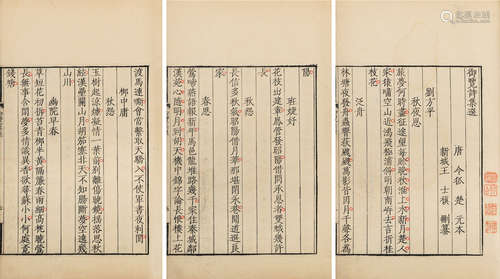 御覽詩集選
唐 令狐 楚 元本
新城王 士禛 刪纂
劉方平
秋夜思
旅夢何時盡征途望每賒晚秋淮上水新月楚人
家猿嘯空山近鴻飛極浦斜明朝南岸去言折桂
枝花
泛舟
林塘夜發舟蟲響荻颼颼萬影皆因月千聲各為
班婕妤
花枝出建章鳳管發昭陽借問承恩者雙蛾幾許
長
秋怨
長信多秋氣昭陽借月華那堪閉永巷聞道選良
家
春思
鶯啼燕語報新年馬邑龍堆路幾千家住秦城鄰
漢苑心隨明月到胡天機中錦字論長恨樓上花
渡馬連嘶會當繫取天驕入不使軍書夜到
柳中庸
秋怨
玉樹起涼煙凝情一葉前別離傷曉鏡搖落思秋
絃漢壘關山月胡笳塞北天不知腸斷夢空遶幾
山川
幽院早春
草短花初拆苔青柳半黃隔簾春雨細高枕曉鶯
長無事含閑夢多情識異香欲尋蘇小小何處覓
錢塘